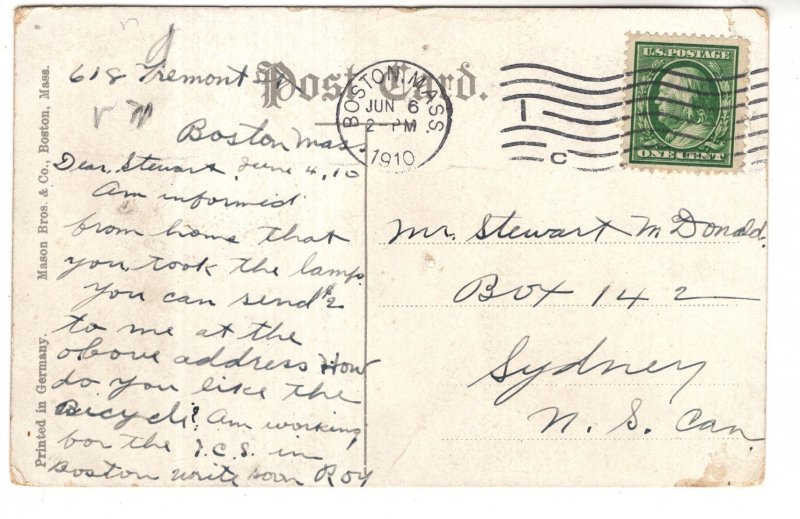 618 Tremont St
Boston Mass.
Dear Stewart, June 4, 10
Am informed
from home that
you took the lamp.
You can send $2
to me at the
above address How
do you like the
Bicycle? Am working
for the I.C.S. in
Boston write soon Roy
Post Card.
BOSTON, MASS.
JUN 6
2-PM
1910
C
U.S. POSTAGE
ONE CENT
Mr. Stewart McDonald.
Box 142
Sydney
N. S. Can
Printed in Germany. Mason Bros. & Co., Boston, Mass.